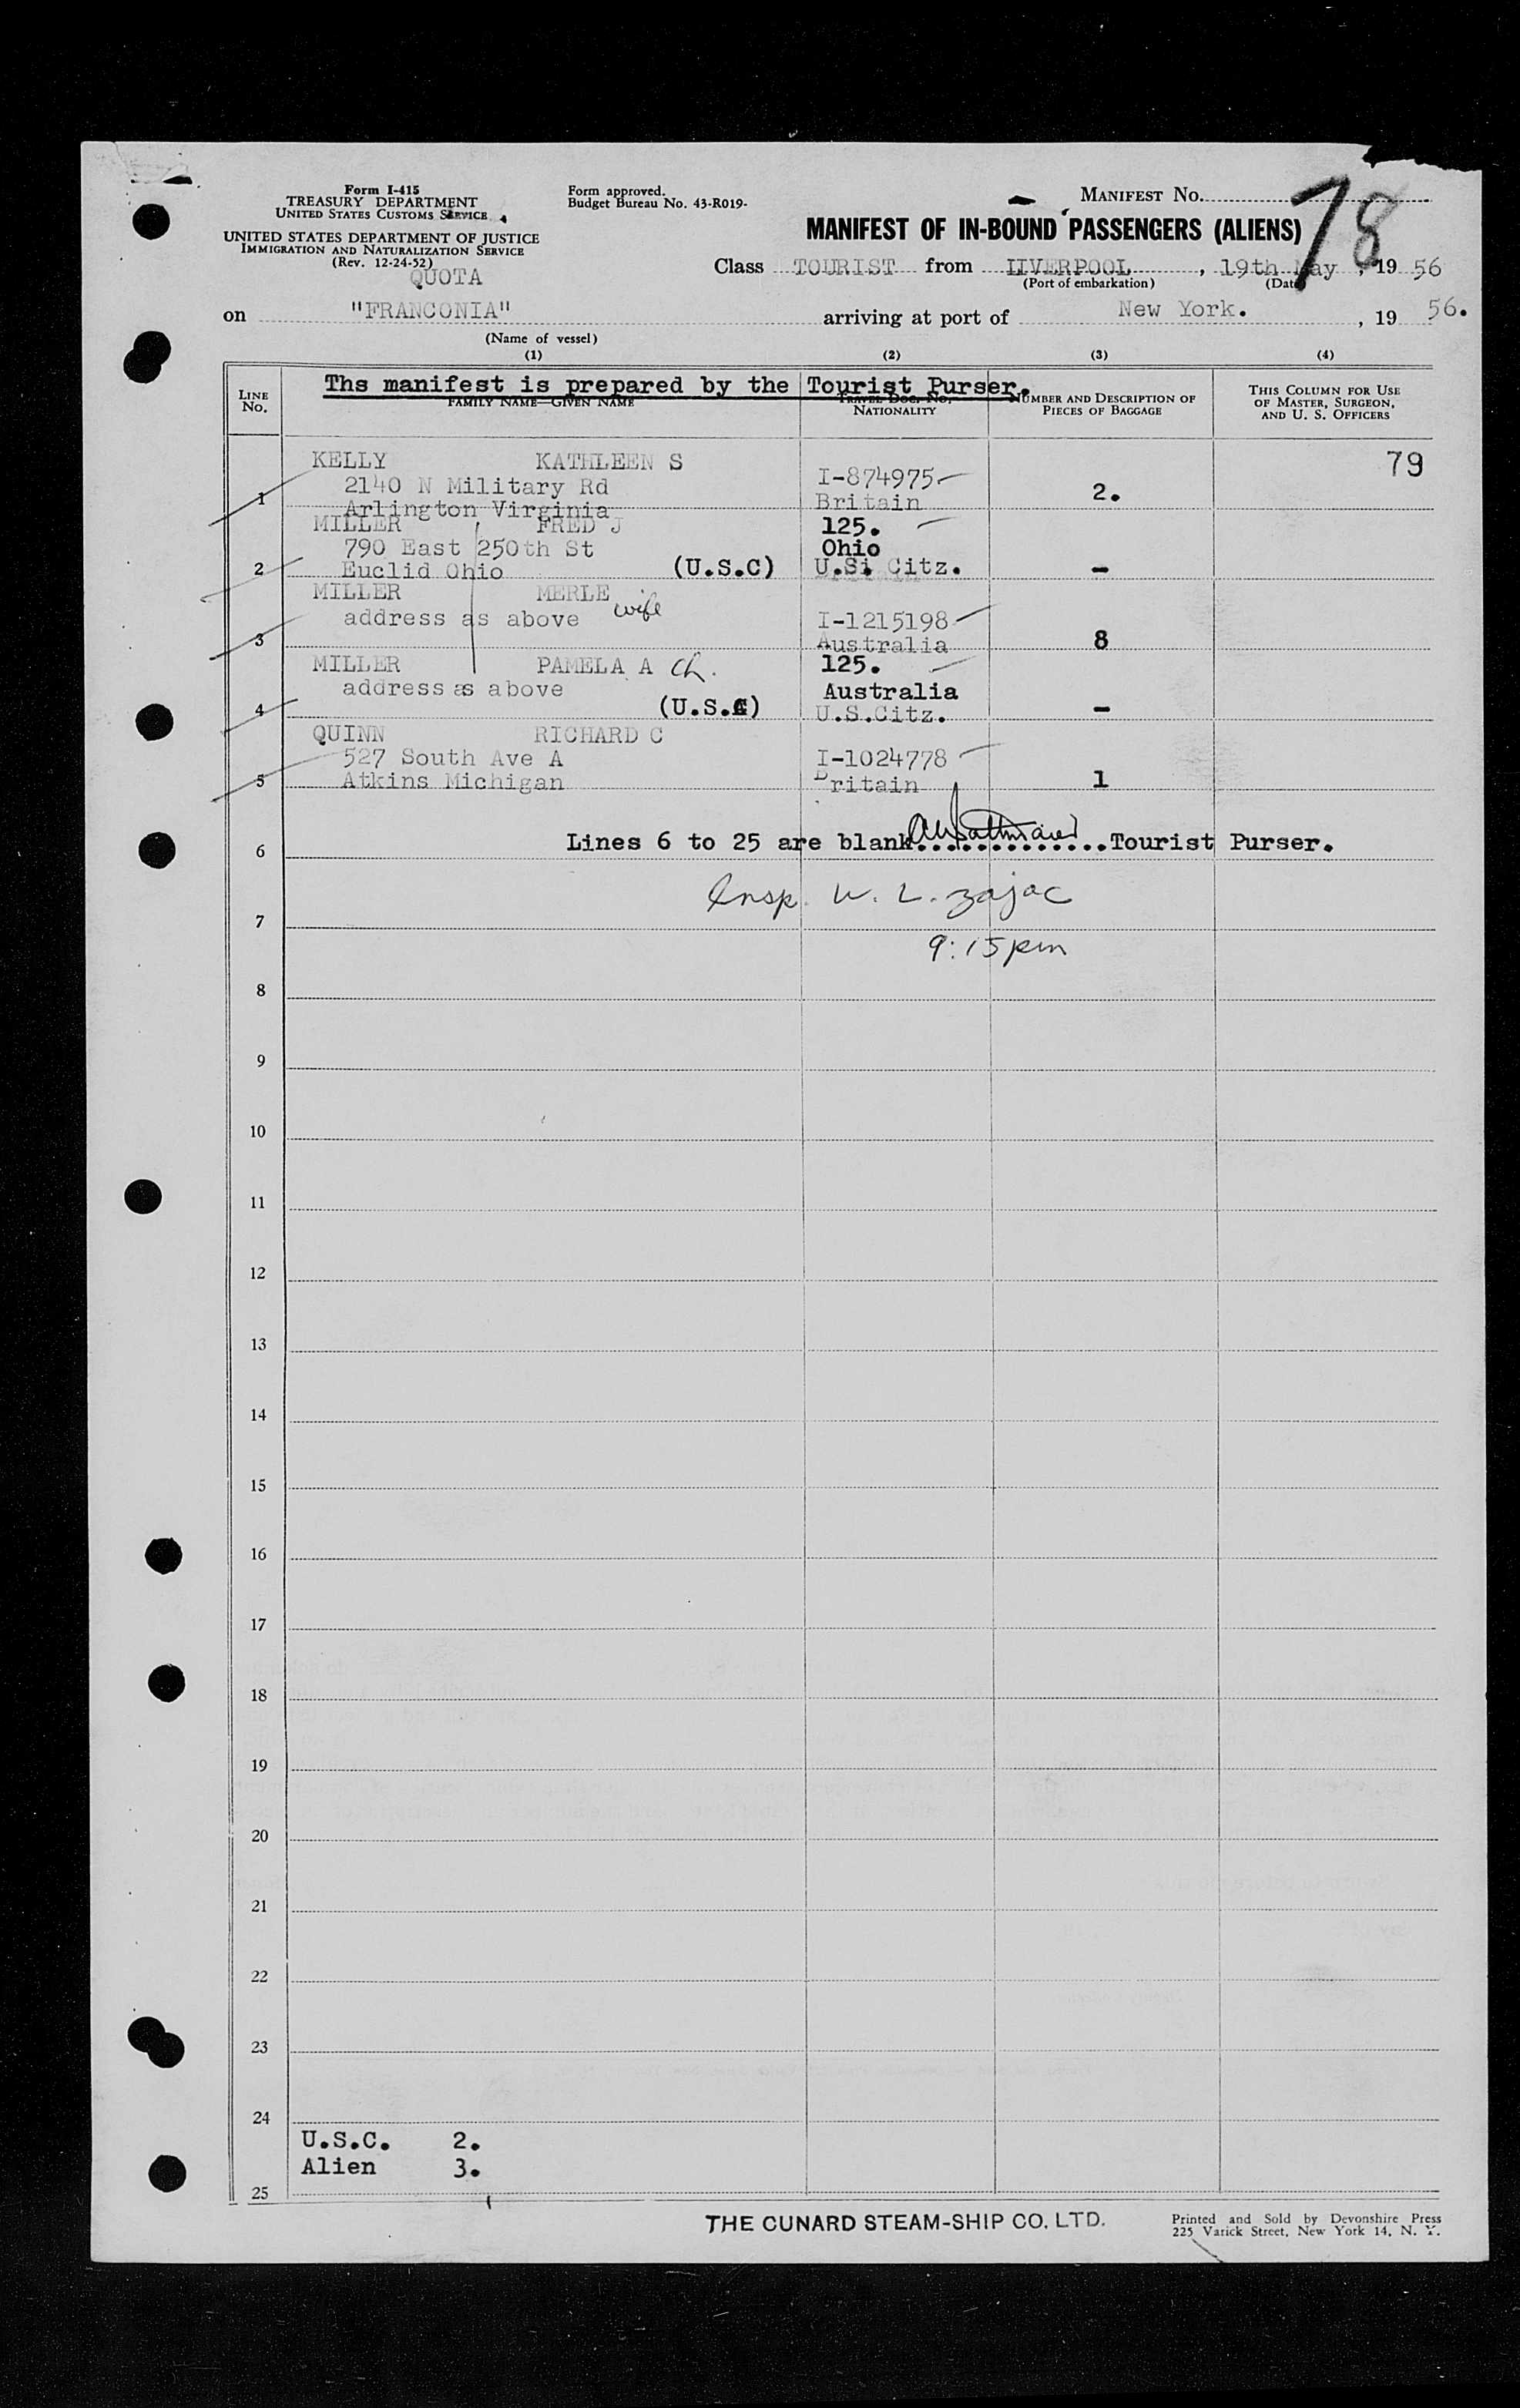 Form I-415
TREASURY DEPARTMENT
UNITED STATES CUSTOMS SERVICE
UNITED STATES DEPARTMENT OF JUSTICE
IMMIGRATION AND NATURALIZATION SERVICE
(Rev. 12-24-52)
QUOTA
Form approved.
Budget Bureau No. 43-R019-
MANIFEST No. 78
MANIFEST OF IN-BOUND PASSENGERS (ALIENS)
Class TOURIST from LIVERPOOL, 19th May, 1956
(Port of embarkation) (Date)
on "FRANCONIA" arriving at port of New York., 19 56.
(Name of vessel)
(1) (2) (3) (4)
Ths manifest is prepared by the Tourist Purser.
LINE No.
FAMILY NAME—GIVEN NAME
TRAVEL DOC. NO. NATIONALITY
NUMBER AND DESCRIPTION OF PIECES OF BAGGAGE
THIS COLUMN FOR USE OF MASTER, SURGEON, AND U. S. OFFICERS
79
KELLY KATHLEEN S
2140 N Military Rd I-874975
1 Arlington Virginia Britain 2.
MILLER FRED J 125.
790 East 250th St Ohio
2 Euclid Ohio (U.S.C) U.S. Citz. -
MILLER MERLE wife
address as above I-1215198
3 Australia 8
MILLER PAMELA A ch. 125.
address as above Australia
4 (U.S.C) U.S.Citz. -
QUINN RICHARD C
527 South Ave A I-1024778
5 Atkins Michigan Britain 1
6 Lines 6 to 25 are blank..............Tourist Purser.
Insp. W. L. Zajac
7
9:15pm
8
9
10
11
12
13
14
15
16
17
18
19
20
21
22
23
24
U.S.C. 2.
Alien 3.
25
THE CUNARD STEAM-SHIP CO. LTD.
Printed and Sold by Devonshire Press
225 Varick Street, New York 14, N. Y.